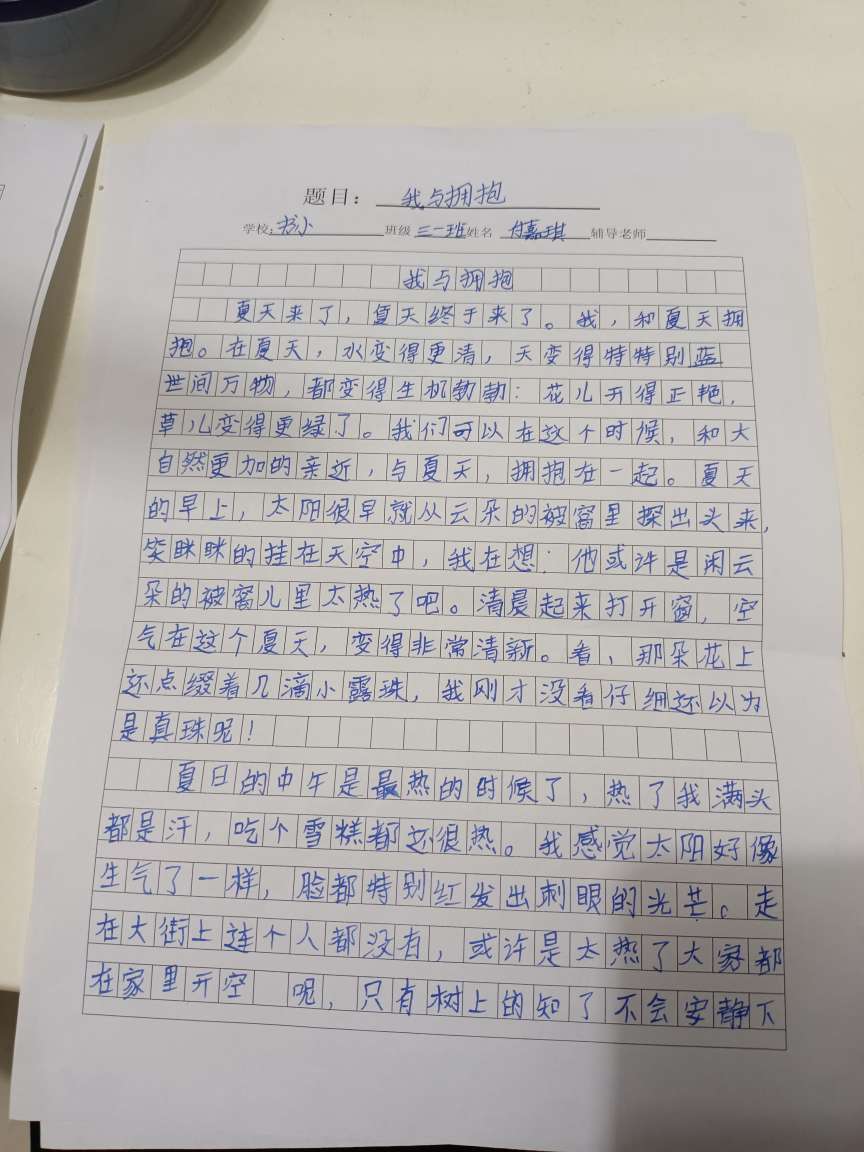 题目：我与拥抱
学校：书小 班级 三一班 姓名 付嘉琪 辅导老师
我与拥抱
夏天来了，夏天终于来了。我，和夏天拥
抱。在夏天，水变得更清，天变得特特别蓝
世间万物，都变得生机勃勃：花儿开得正艳，
草儿变得更绿了。我们可以在这个时候，和大
自然更加的亲近，与夏天，拥抱在一起。夏天
的早上，太阳很早就从云朵的被窝里探出头来，
笑眯眯的挂在天空中，我在想：他或许是闲云
朵的被窝儿里太热了吧。清晨起来打开窗，空
气在这个夏天，变得非常清新。看，那朵花上
还点缀着几滴小露珠，我刚才没看仔细还以为
是真珠呢！
夏日的中午是最热的时候了，热了我满头
都是汗，吃个雪糕都还很热。我感觉太阳好像
生气了一样，脸都特别红发出刺眼的光芒。走
在大街上连个人都没有，或许是太热了大家都
在家里开空 呢，只有树上的知了不会安静下